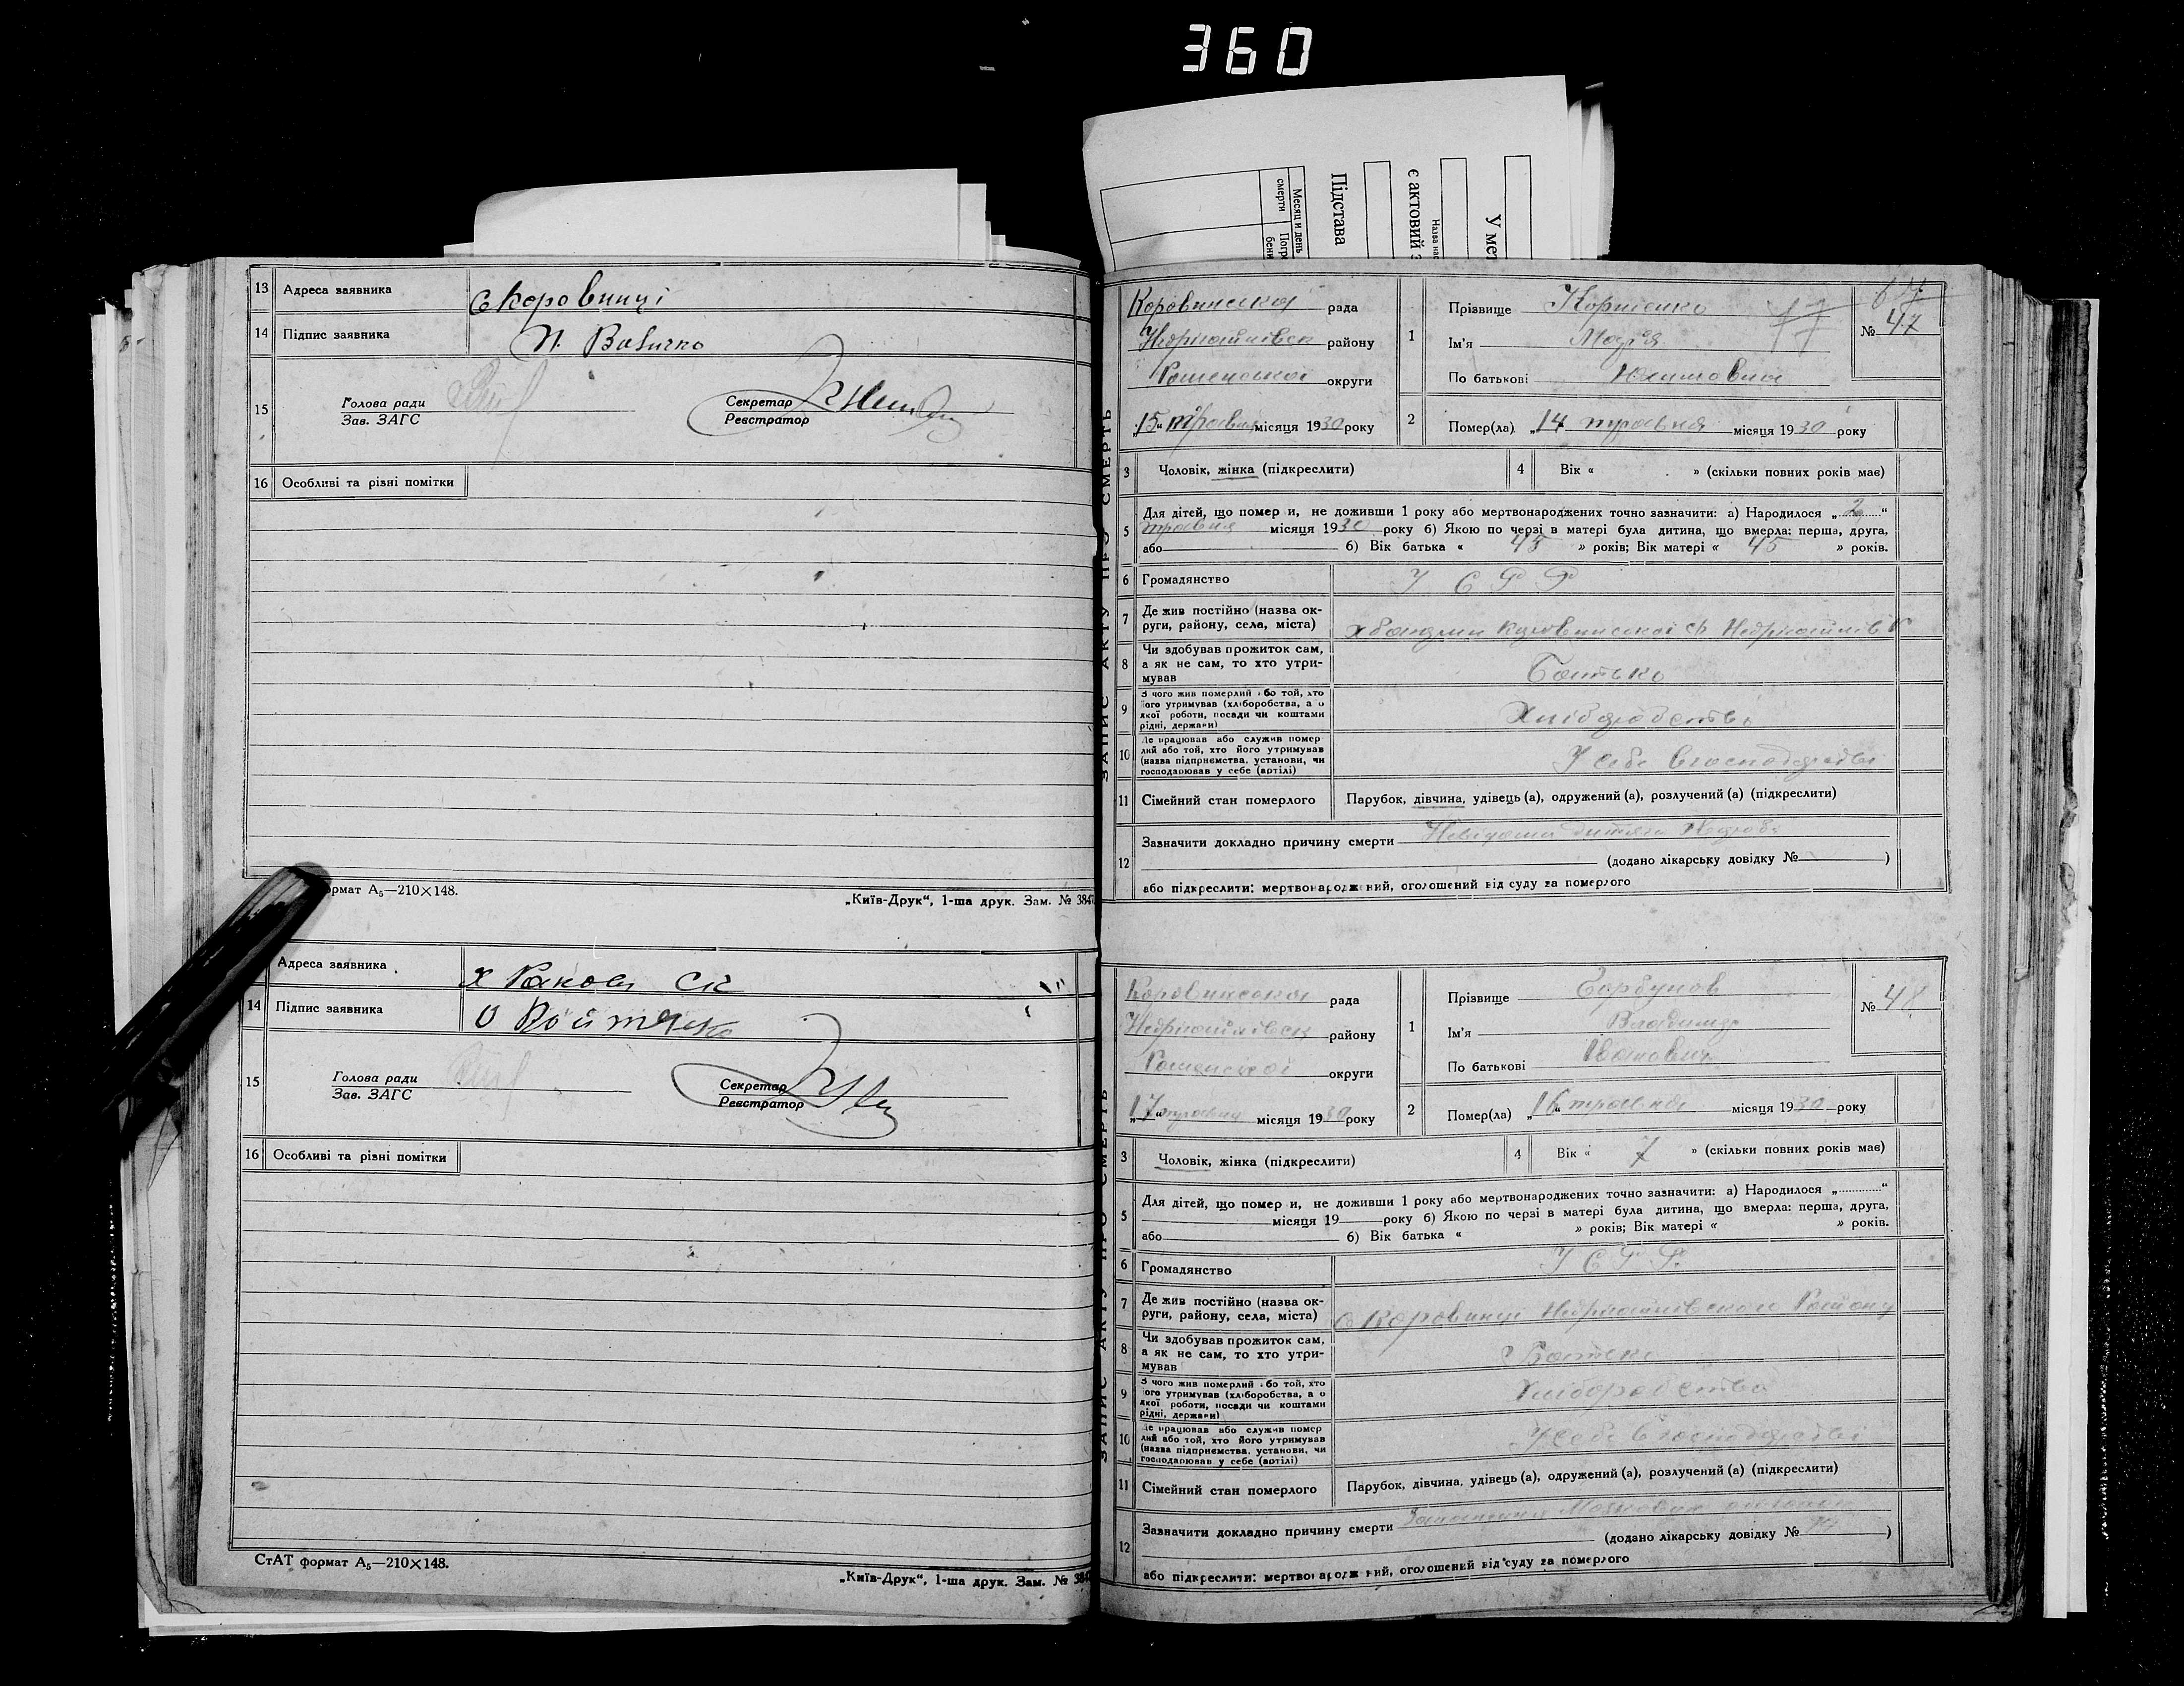 360
Месяц и день
смерти
Підстава
є актовий з
Назва нас
У мет
13 Адреса заявника с Коровинці
14 Підпис заявника П.
15 Голова ради
Зав. ЗАГС
Секретар
Реєстратор
16 Особливі та різні помітки
формат А₅—210×148.
„Київ-Друк“, 1-ша друк. Зам. № 384
Адреса заявника х Ракова СК
14 Підпис заявника О
15 Голова ради
Зав. ЗАГС
Секретар
Реєстратор
16 Особливі та різні помітки
СтАТ формат А₅—210×148.
„Київ-Друк“, 1-ша друк. Зам. № 384
ЗАПИС АКТУ ПРО СМЕРТЬ
Коровинської рада
Недригайлівськ району
Роменської округи
„15“ травня місяця 1930 року
1 Прізвище Корнієнко 77
Ім'я Марія
По батькові Юхимовна
№ 47
2 Помер(ла) „14 травня місяця 1930 року
3 Чоловік, жінка (підкреслити)
4 Вік « » (скільки повних років має)
5 Для дітей, що померли, не доживши 1 року або мертвонароджених точно зазначити: а) Народилося „2“
травня місяця 1930 року б) Якою по черзі в матері була дитина, що вмерла: перша, друга,
або б) Вік батька « 45 » років; Вік матері « 45 » років.
6 Громадянство УСРР
7 Де жив постійно (назва округи, району, села, міста)
8 Чи здобував прожиток сам,
а як не сам, то хто утри-
мував Батько
9 З чого жив померлий або той, хто
його утримував (хліборобства, а о
якої роботи, посади чи коштами
рідні, держави) Хліборобства
10 Де працював або служив помер
лий або той, хто його утримував
(назва підприємства, установи, чи
господарював у себе (артілі) У себе в господарстві
11 Сімейний стан померлого Парубок, дівчина, удівець (а), одружений (а), розлучений (а) (підкреслити)
12 Зазначити докладно причину смерти Невідома дитяча хвороба
(додано лікарську довідку № )
або підкреслити: мертвонароджений, оголошений від суду за померлого
ЗАПИС АКТУ ПРО СМЕРТЬ
Коровинської рада
Недригайлівськ району
Роменської округи
„17“ травня місяця 1930 року
1 Прізвище Горбунов
Ім'я Владимир
По батькові Іванович
№ 48
2 Помер(ла) „16“ травня місяця 1930 року
3 Чоловік, жінка (підкреслити)
4 Вік « 7 » (скільки повних років має)
5 Для дітей, що померли, не доживши 1 року або мертвонароджених точно зазначити: а) Народилося „ “
місяця 19 року б) Якою по черзі в матері була дитина, що вмерла: перша, друга,
або б) Вік батька « » років; Вік матері « » років.
6 Громадянство УСРР
7 Де жив постійно (назва ок-
руги, району, села, міста) с Коровинці Недригайлівського Району
8 Чи здобував прожиток сам,
а як не сам, то хто утри-
мував Батько
9 З чого жив померлий або той, хто
його утримував (хліборобства, а о
якої роботи, посади чи коштами
рідні, держави) Хліборобства
10 Де працював або служив помер
лий або той, хто його утримував
(назва підприємства, установи, чи
господарював у себе (артілі) У себе в господарстві
11 Сімейний стан померлого Парубок, дівчина, удівець (а), одружений (а), розлучений (а) (підкреслити)
12 Зазначити докладно причину смерти
(додано лікарську довідку № )
або підкреслити: мертвонароджений, оголошений від суду за померлого